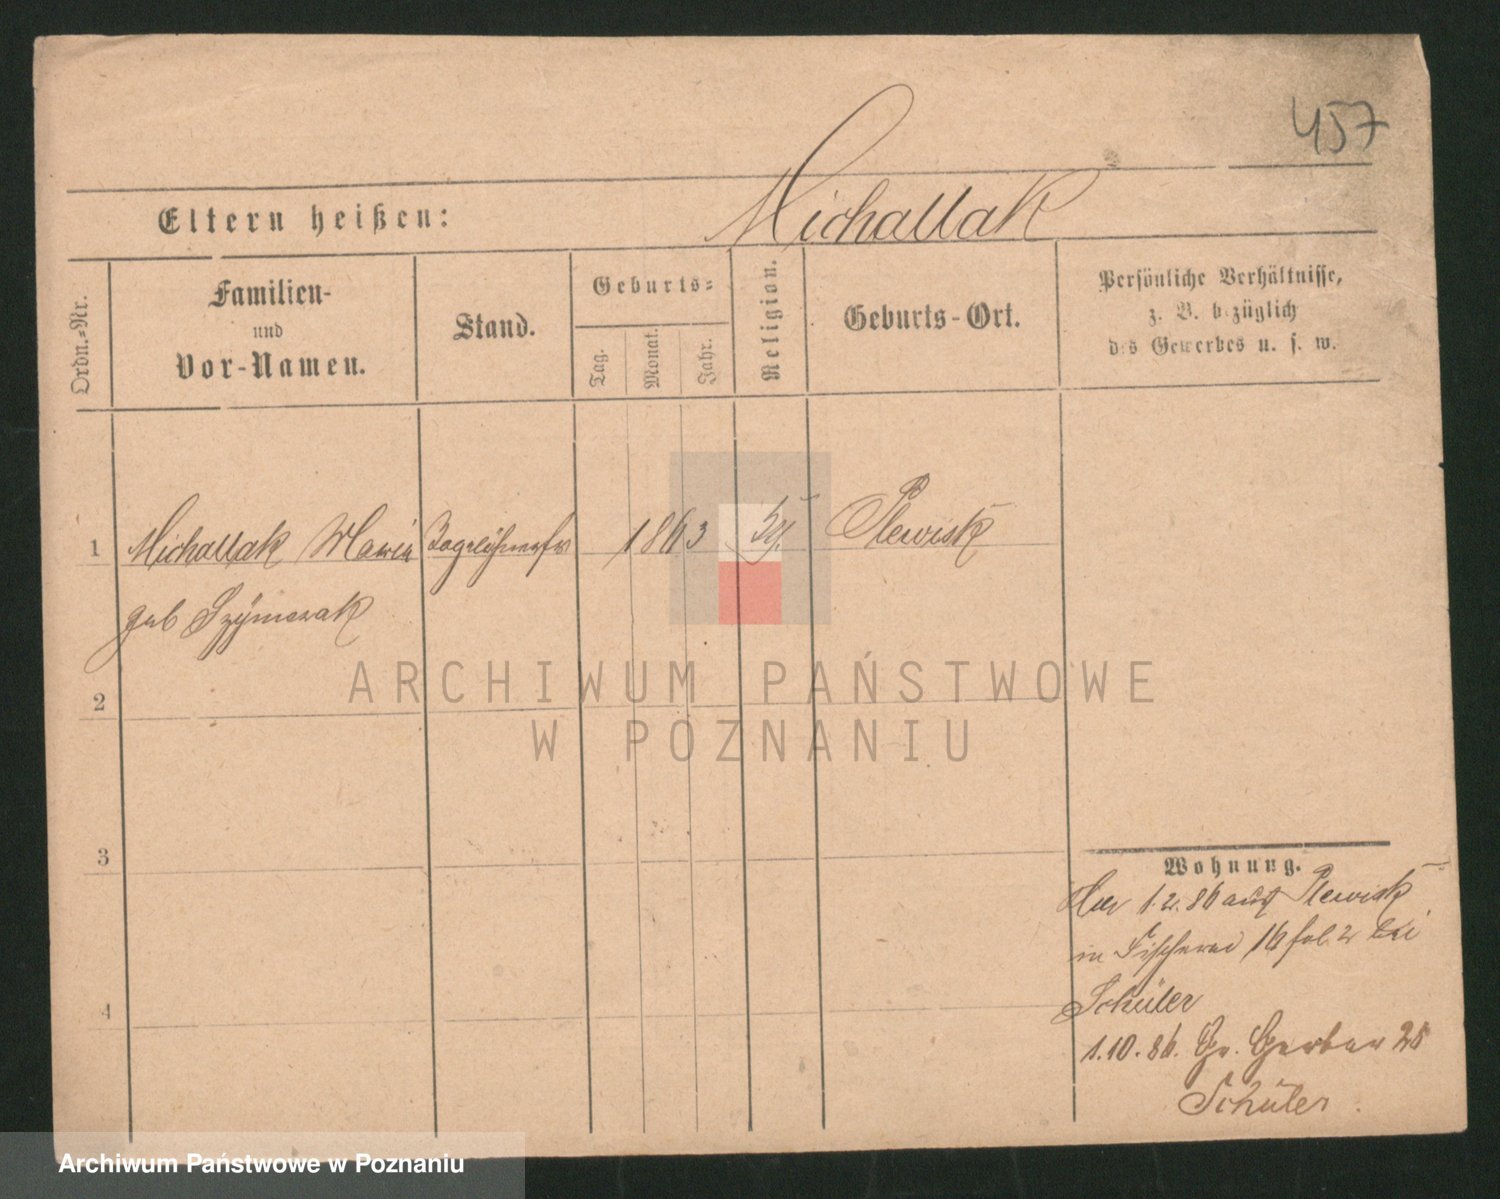 457
Eltern heißen: Michallak
Ordn.-Nr.
Familien-
und
Vor-Namen.
Stand.
Geburts-
Tag.
Monat.
Jahr.
Religion.
Geburts-Ort.
Persönliche Verhältnisse,
z. B. bezüglich
des Gewerbes u. s. w.
1 Michallak Maria 1863 Plewisk
geb Szÿmczak
2
3
4
Wohnung.
1.2.86 aus Plewisk
in Fischerei 16 bei
Schüler
1.10.86. Gr. Gerber 25
Schüler.
ARCHIWUM PAŃSTWOWE
W POZNANIU
Archiwum Państwowe w Poznaniu